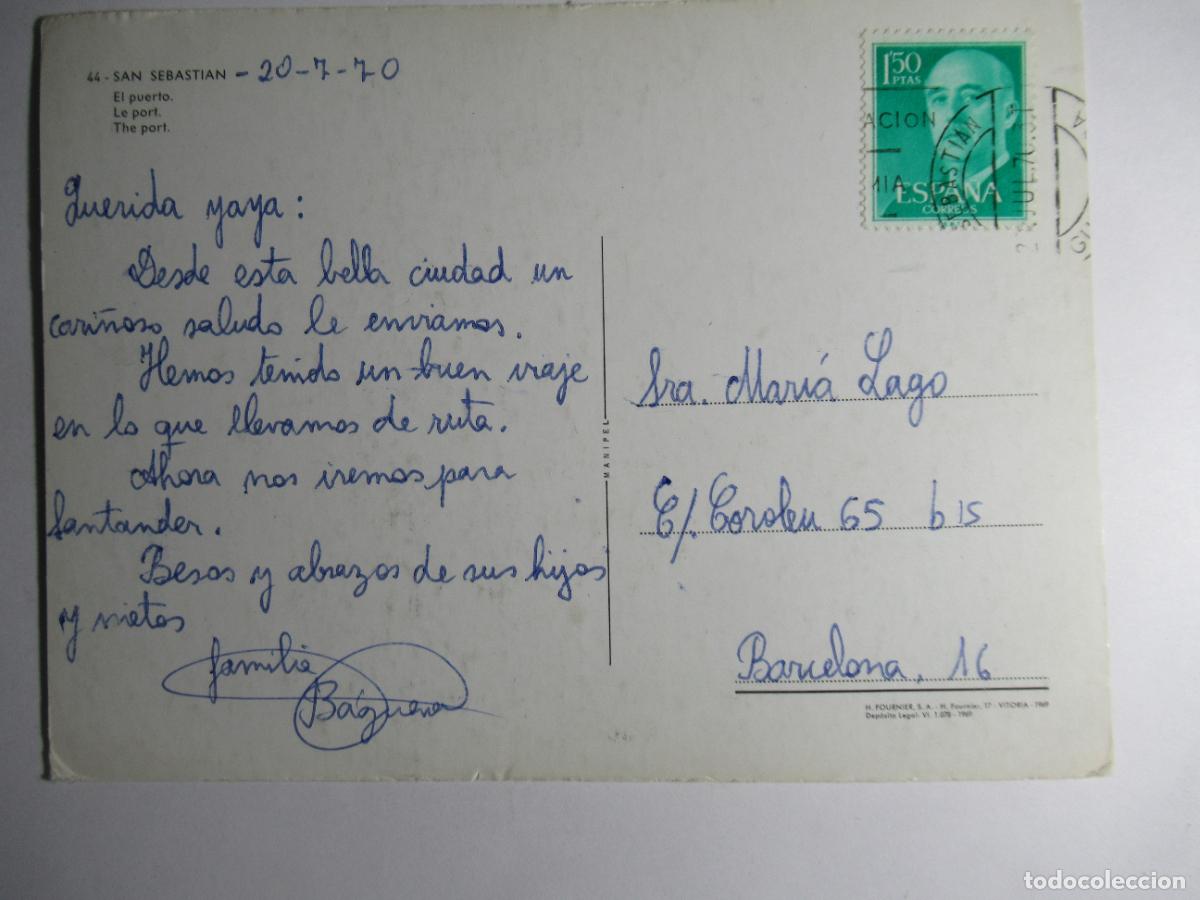 44 - SAN SEBASTIAN - 20-7-70
El puerto.
Le port.
The port.
Querida yaya:
Desde esta bella ciudad un
cariñoso saludo le enviamos.
Hemos tenido un buen viaje
en lo que llevamos de ruta.
Ahora nos iremos para
Santander.
Besos y abrazos de sus hijos
y nietos
familia
Báguena
MANIPEL
1'50
PTAS
ESPAÑA
CORREOS
ACION
MIA
SEBASTIAN
JUL.70
Sra. Mariá Lago
C/. Coroleu 65 bis
Barcelona, 16
H. FOURNIER, S. A. - H. Fournier, 17 - VITORIA - 1969
Depósito Legal: VI. 1.078 - 1969
todocoleccion